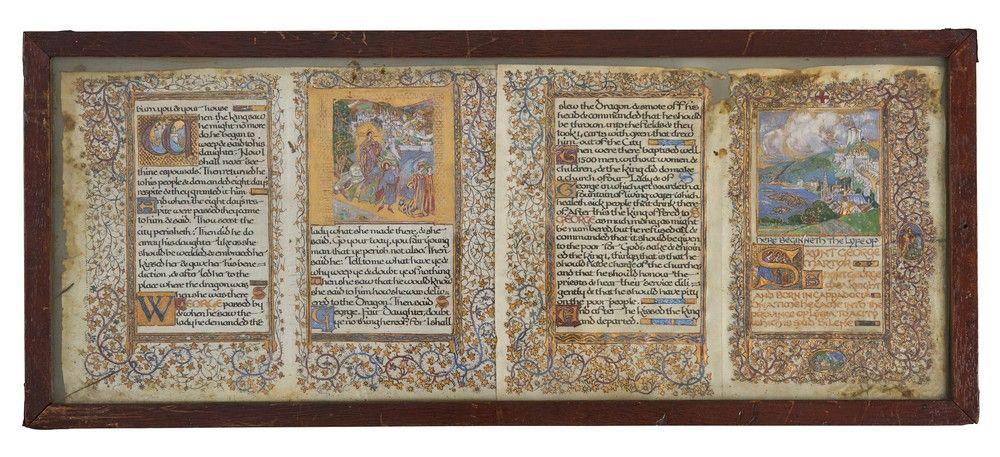 burn you & your house
hen the king saw
he might no more
do he began to
weep & said to his
daughter. Now I
shall never see
thine espousals. Then returned he
to his people & demanded eight days
respite & they granted it him
And when the eight days res-
pite were passed they came
to him & said. Thou seest the
city perisheth: Then did he do
array his daughter like as she
should be wedded & embraced her
kissed her & gave her his bene-
diction, & after led her to the
place where the dragon was
When she was there
GEORGE passed by
& when he saw the
lady he demanded the
lady what she made there, & she
said. Go your way, you fair young
man that ye perish not also. Then
said he: Tell to me what have ye &
why weep ye & doubt ye of nothing
When she saw that he would know
she said to him how she was deliv-
ered to the Dragon. Then said
George. Fair Daughter, doubt
ye no thing hereof for I shall
slew the Dragon & smote off his
head & commanded that he should
be thrown into the fields & they
took 4 carts with oxen that drew
him out of the City
Then were there baptised well
1500 men without women &
children, & the king did do make
a church of our Lady & of
George in which yet sourdeth a
fountain of living water which
healeth sick people that drink there
of. After this the king offered to
as much money as might
be numbered, but he refused all &
commanded that it should be given
to the poor for God's sake & enjoin
ed the king 4 things, that is that he
should have charge of the churches
and that he should honour the
priests & hear their service dili-
gently & that he should have pity
on the poor people.
And after he kissed the king
and departed.
HERE BEGINNETH THE LYFE OF
SAINT GEO
MARTYR
AND BORN IN CAPPADOCIA
AT A TIME HE CAME IN THE
PROVINCE OF LYBIA TO A CITY
WHICH IS SAID SILENE